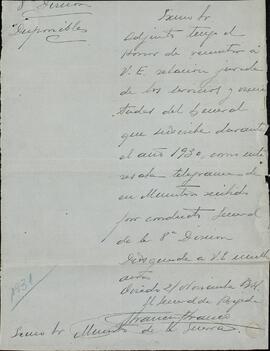 8ª Division
Disponibles
Excmo Sr
Adjunto tengo el
honor de remitir a
V.E. relacion jurada
de los servicios y
del General
que suscribe durante
el año 1930, como inte
resa telegrama de
su Ministerio recibido
por conducto General
de la 8ª Division
Dios guarde a V.E. muchos
años
Oviedo 21 Noviembre 1931
El General de Brigada
Franco
1931
Excmo Sr Ministro de la Guerra.